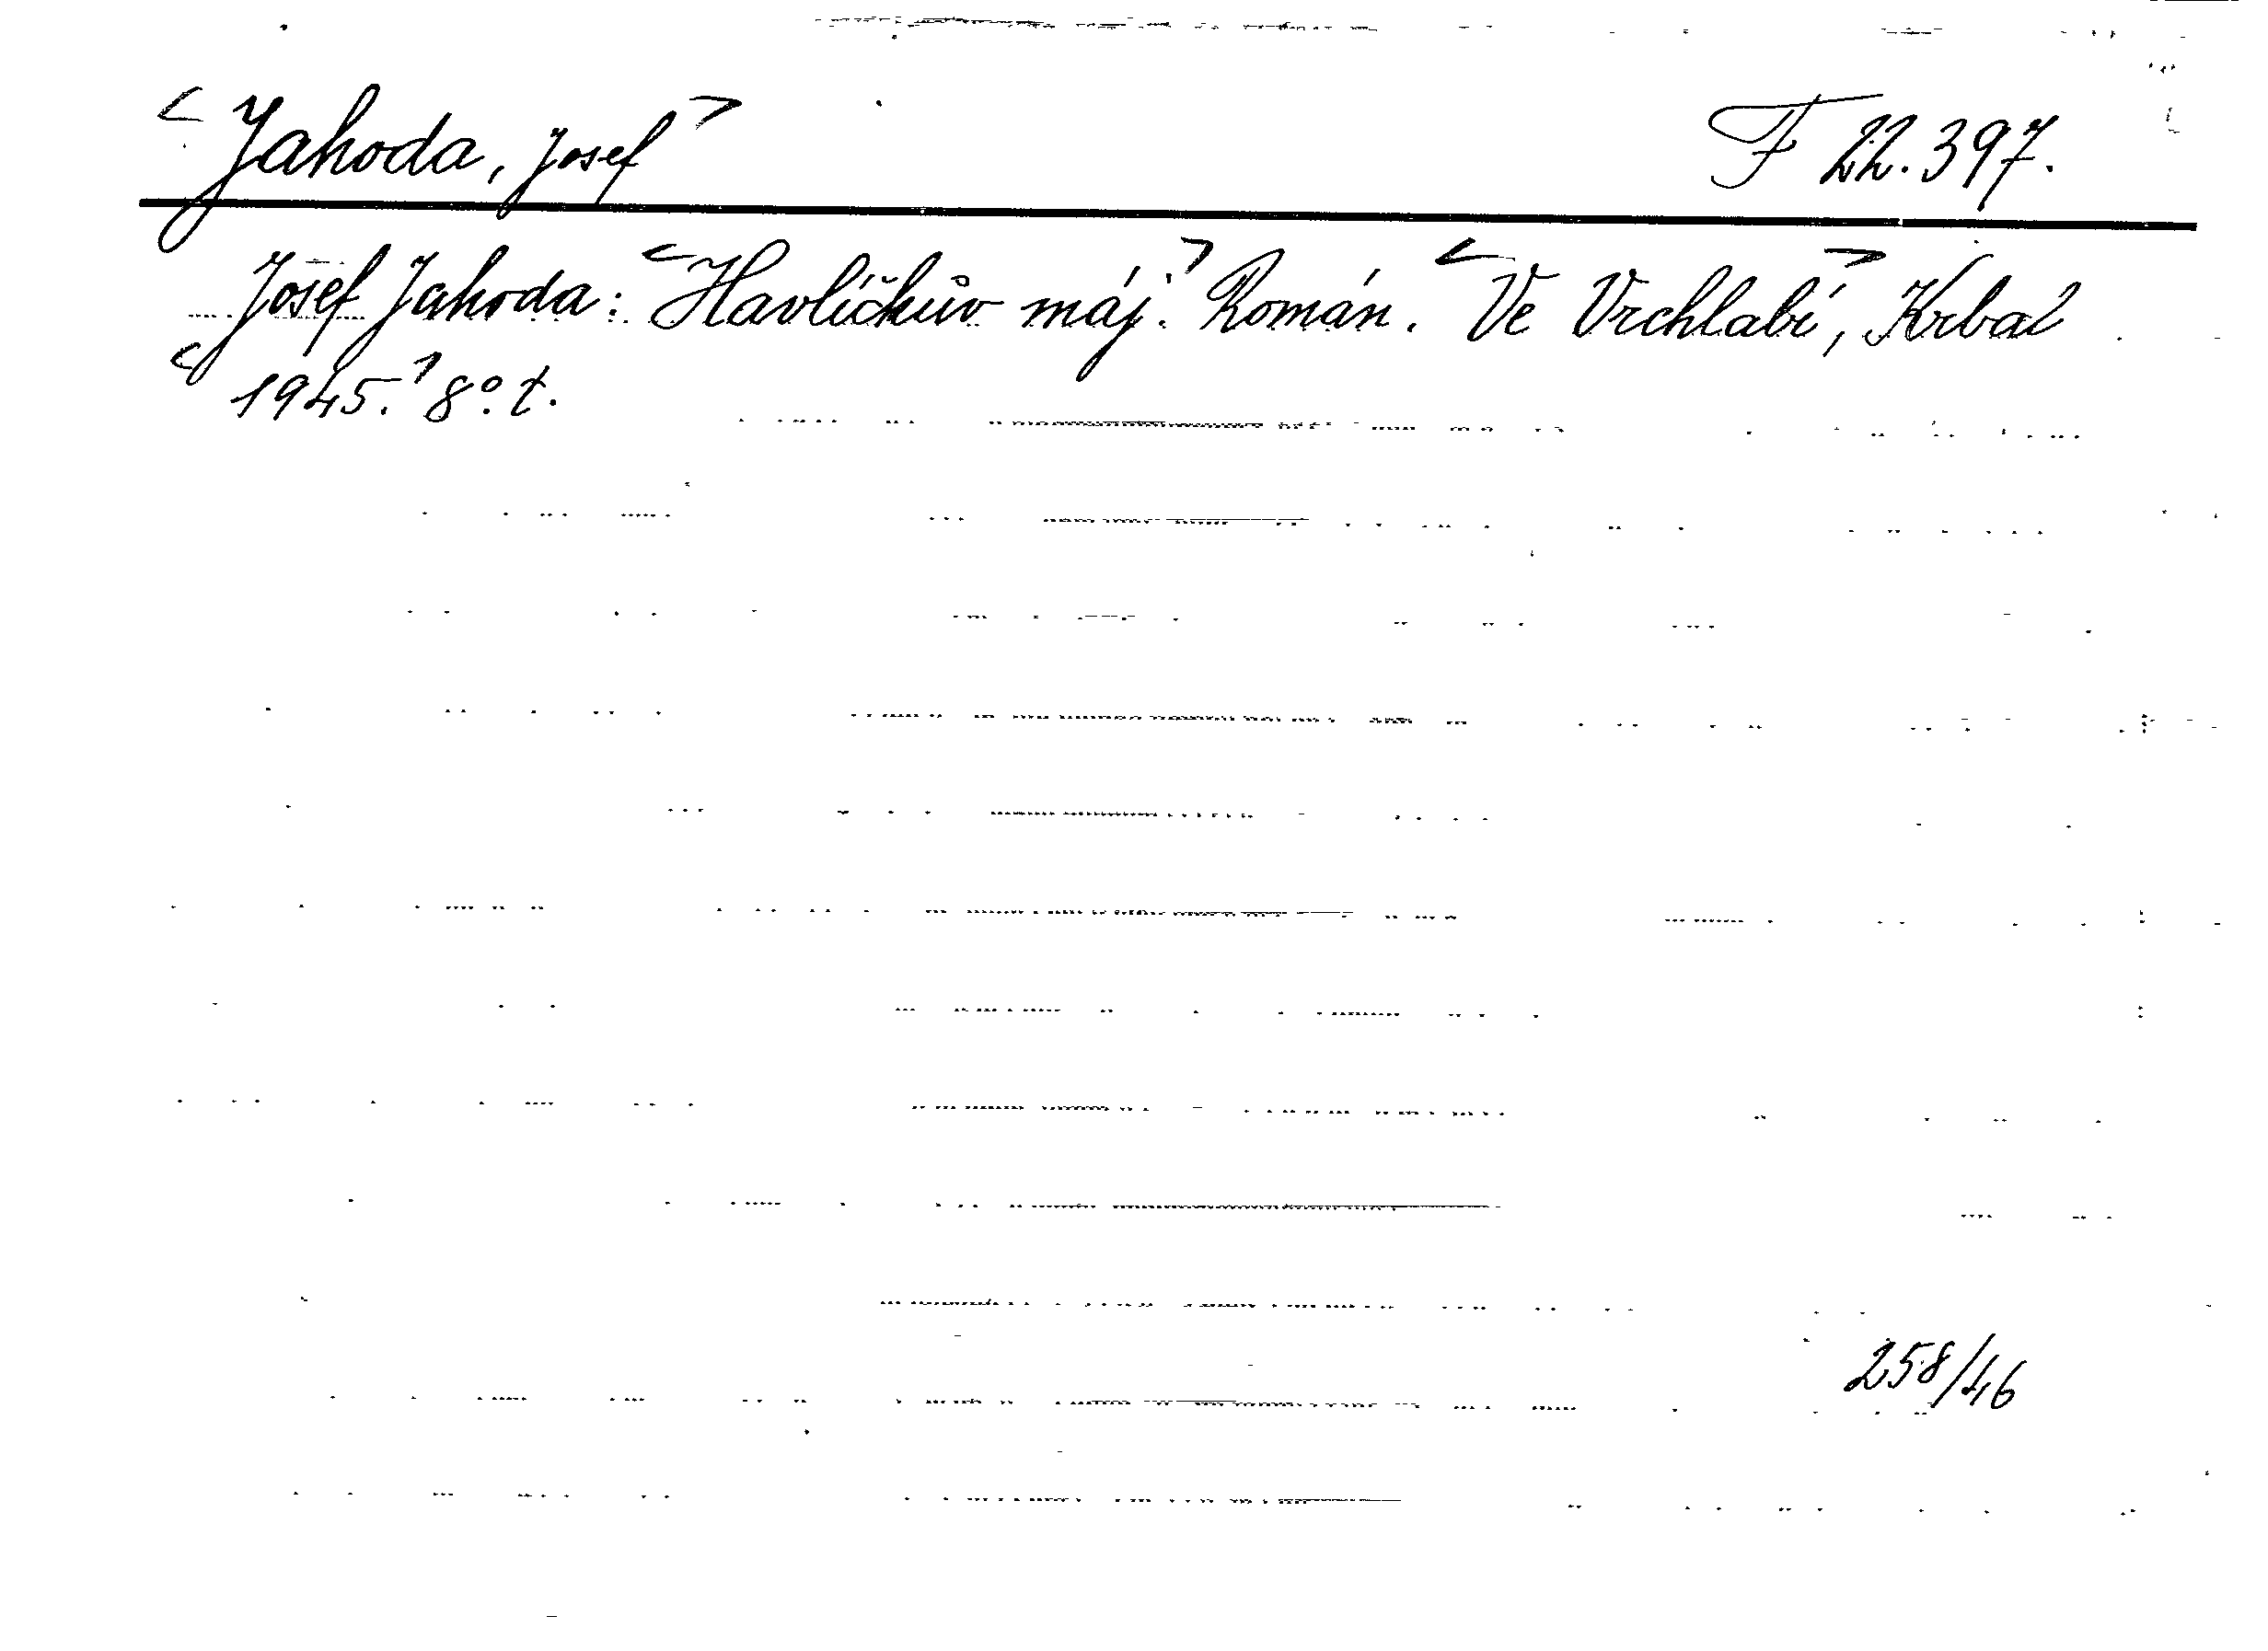 <Jahoda, Josef> F 22.397.
Josef Jahoda: <Havlíčkův máj.> Román. <Ve Vrchlabí>, Krbal
<1945.> 8° t.
258/46